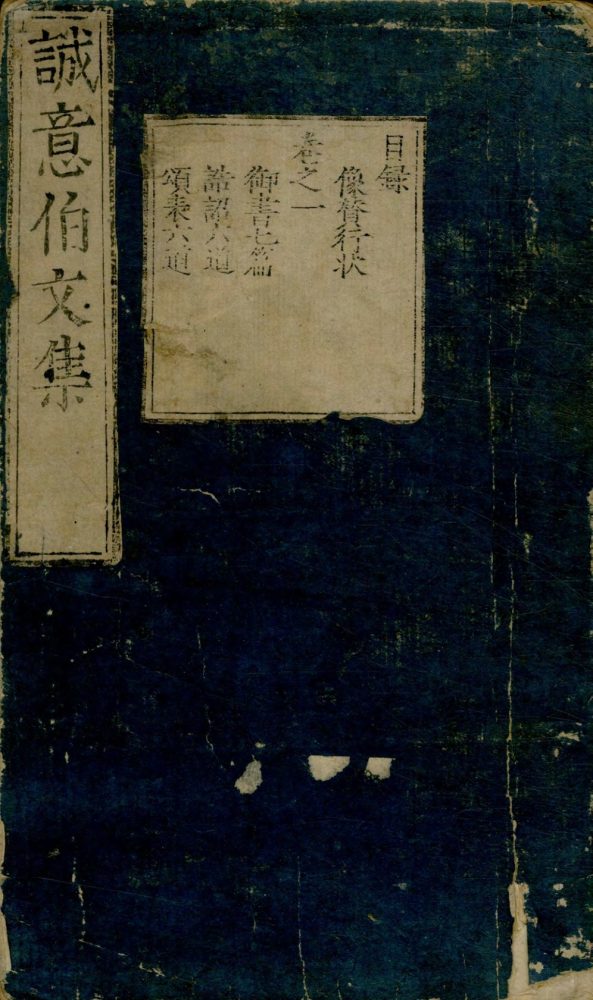 誠意伯文集
目録
像賛行状
卷之一
御書七篇
誥詔六道
頌表六道